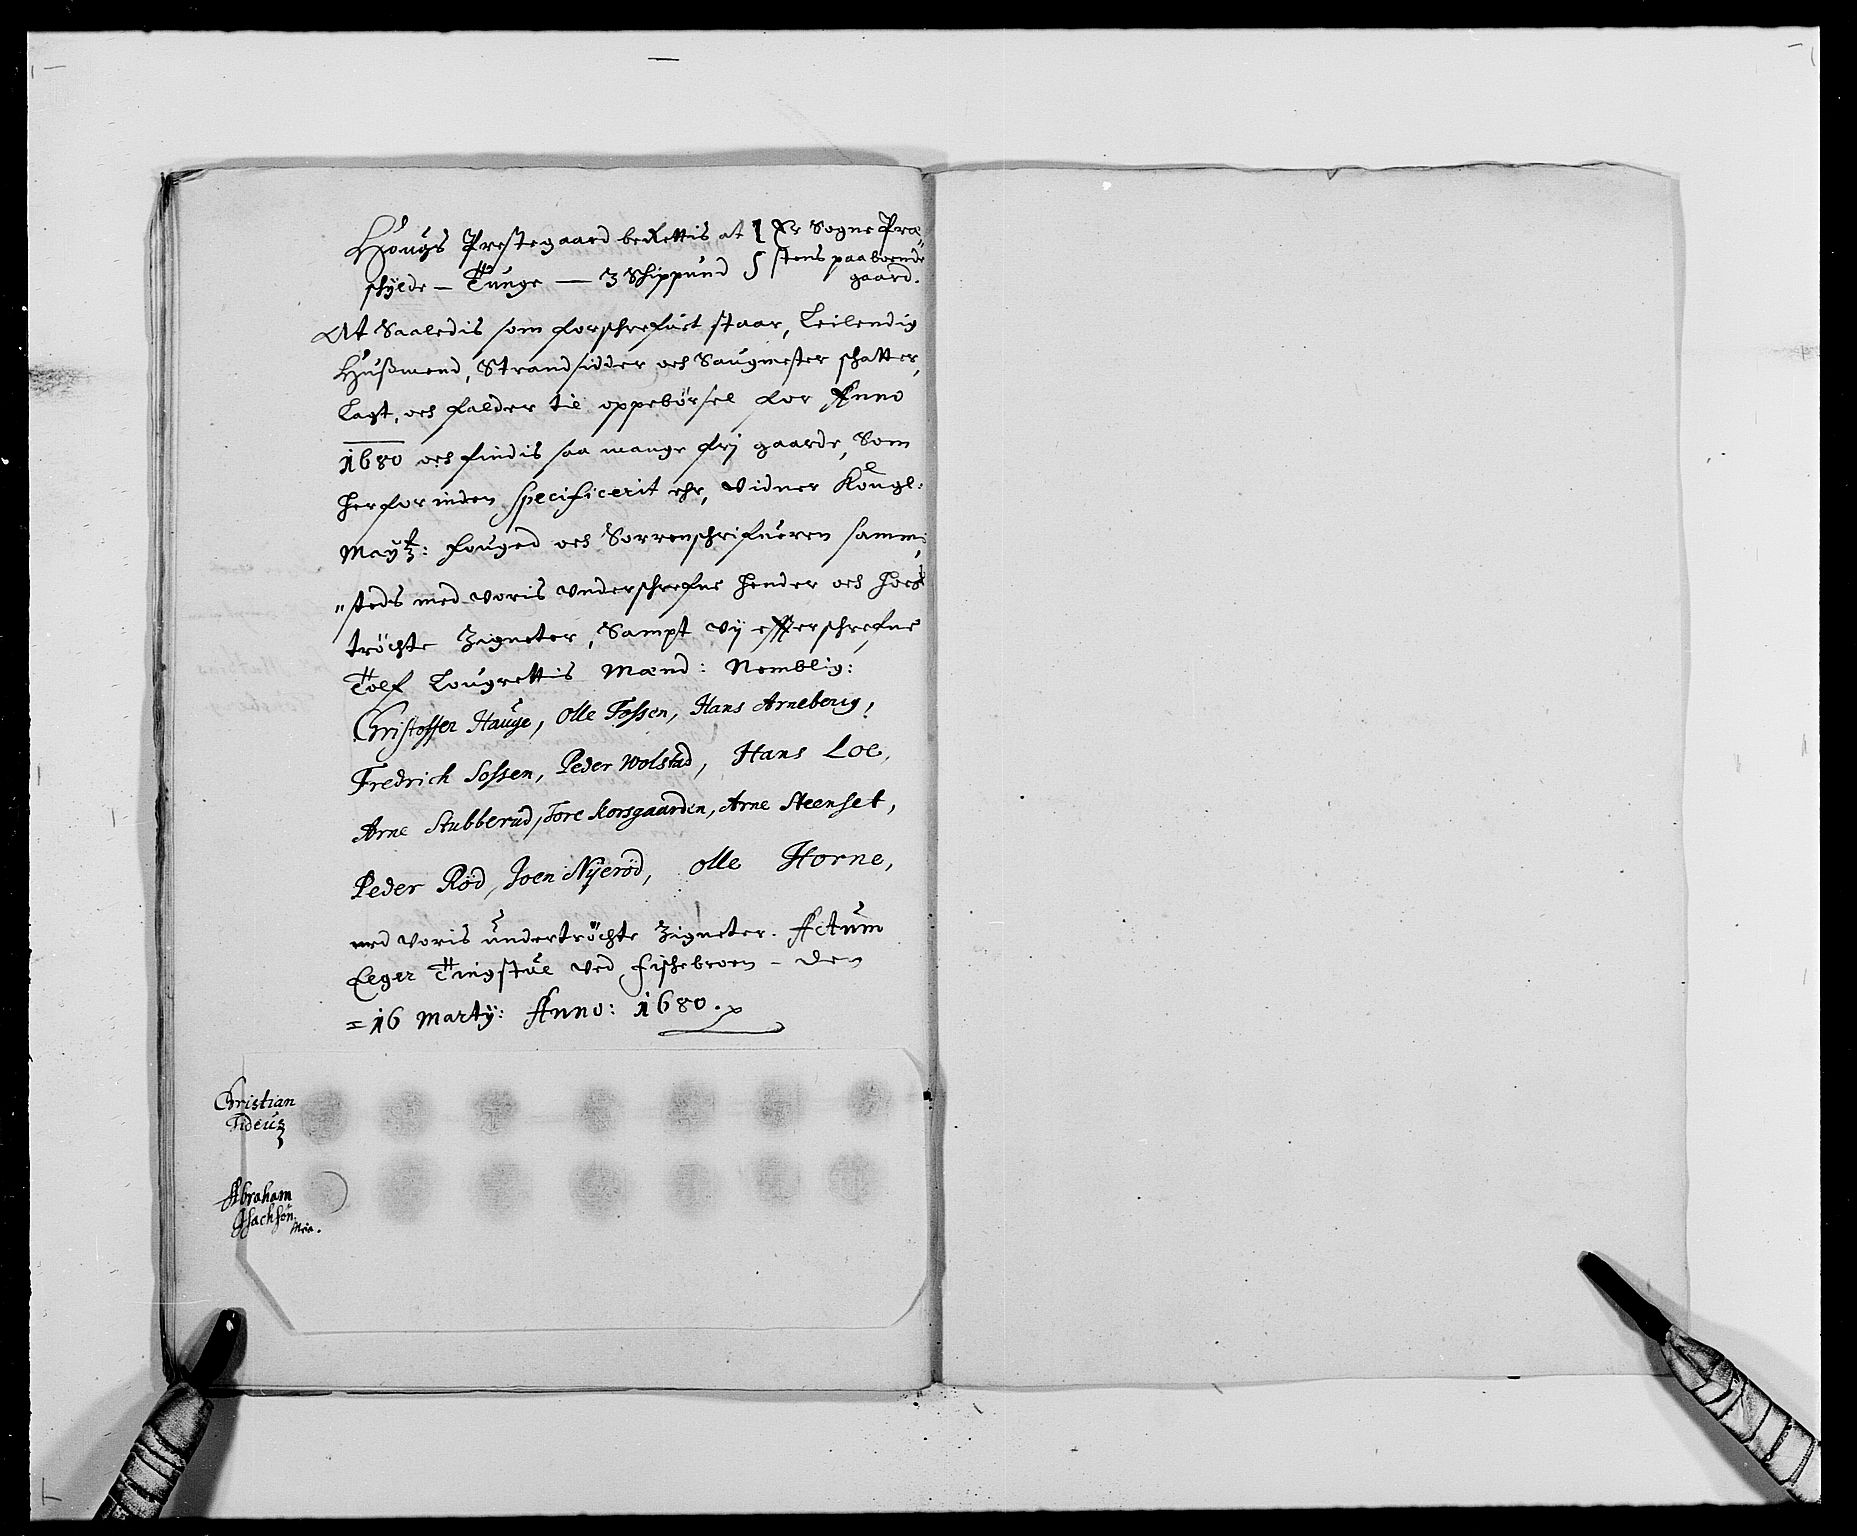 Hougs Prestegaard berettis at } Er Sogne Præ„
schylde — Tunge — 3 Schippund } stens paaboende
gaard.
At Saaledis som forschrefuet staar, Leilendig
Hußmend, Strandsidder och Saugmester schatter,
Lagt, och falder til oppebörsel for Anno
1680 och findis saa mange frj gaarde, Som
herforinden specificerit ehr, Vidner Kongl:
Maytz: fouged och Sorrenschrifueren sammi
„steds med voris underschrefne hender och hoes
tröchte Zigneter, Sampt vy effterschrefne
Tolf Lougrettis Mænd: Nemblig:
Christoffer Hauge, Olle Fossen, Hans Arneberg,
Fredrich Fossen, Peder Wolstad, Hans Loe,
Arne Stubberud, Tore Korsgaarden, Arne Steenset,
Peder Röd, Joen Nyeröd, Olle Horne,
med voris undertröchte Zigneter. Actum
Eeger Tingstue ved fischebroen - den
= 16 Marty: Anno: 1680.
Christian
Fideuz
Abraham
Isachsøn
Mia.